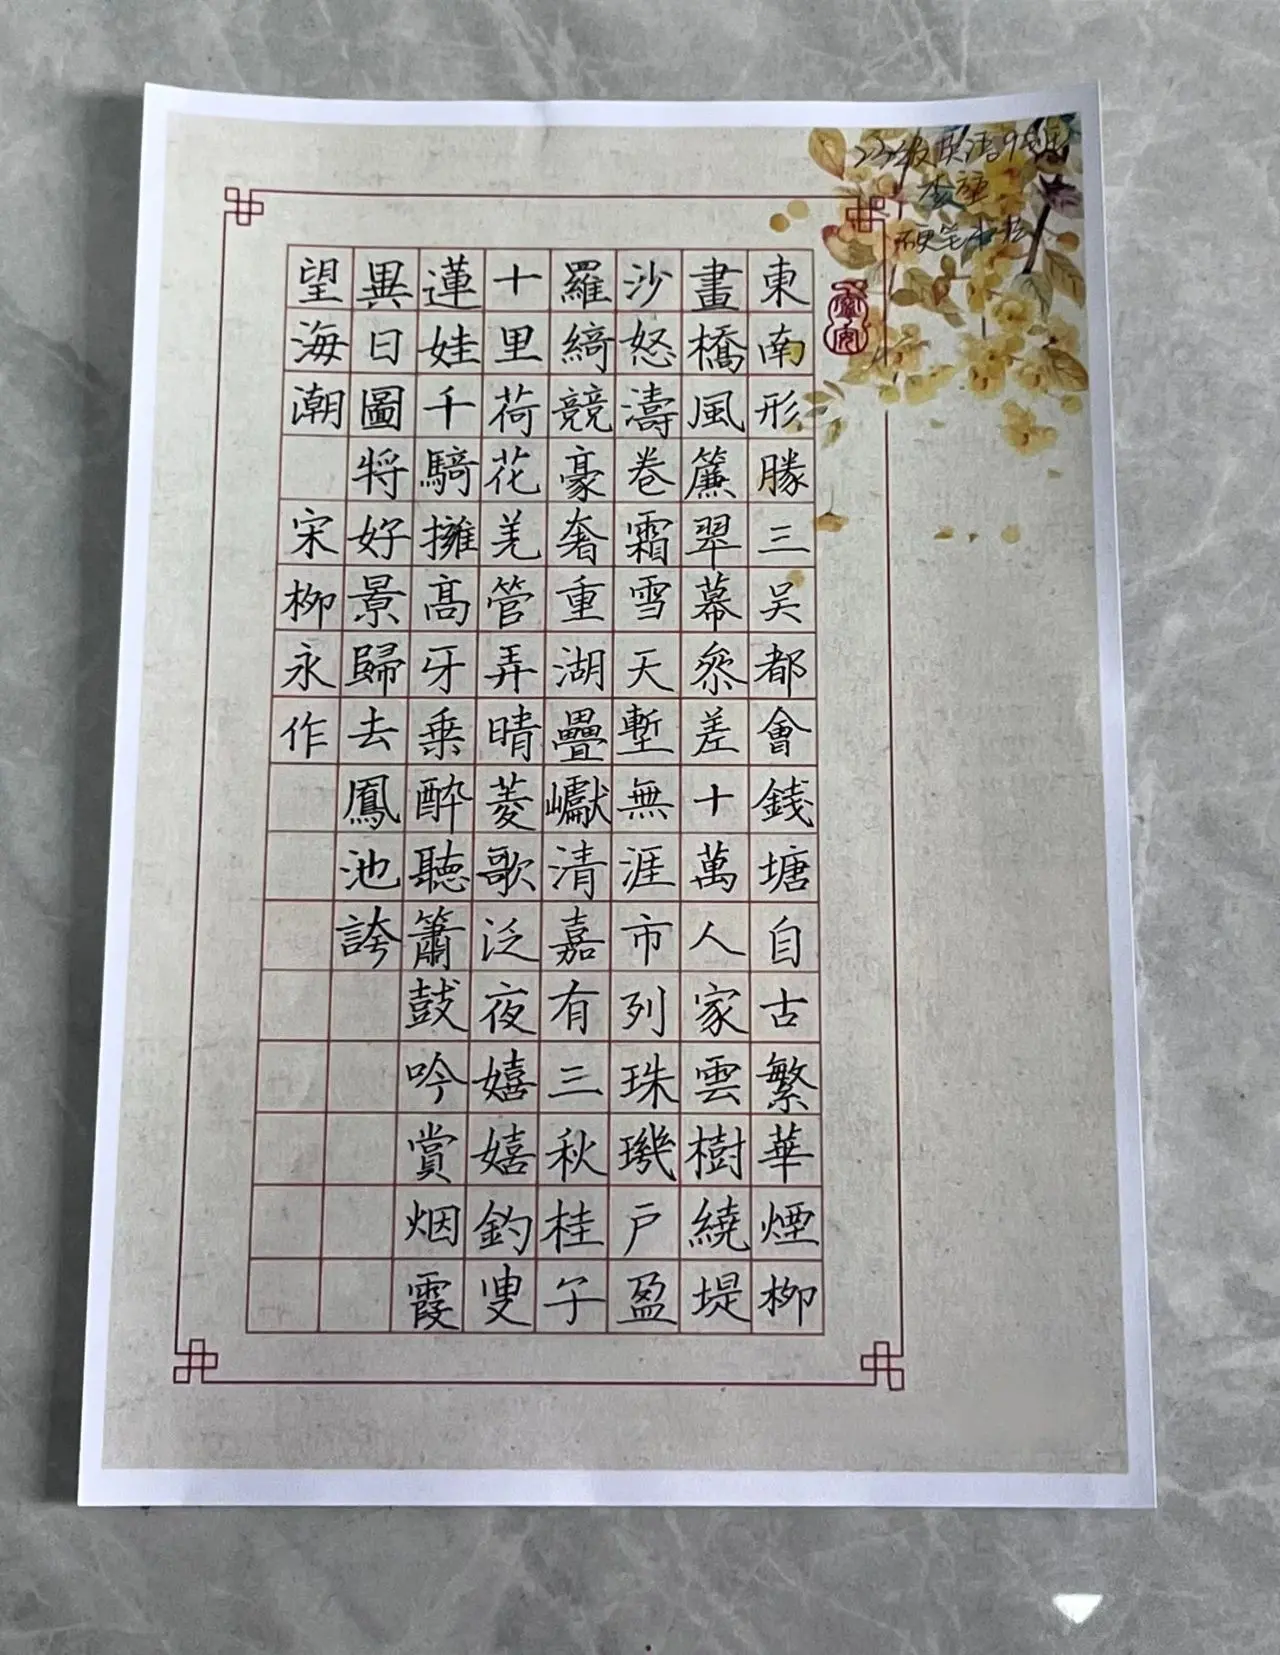 東南形勝三吴都會錢塘自古繁華煙柳
畫橋風簾翠幕叅差十萬人家雲樹繞堤
沙怒濤卷霜雪天塹無涯市列珠璣戶盈
羅綺競豪奢重湖疊巘清嘉有三秋桂子
十里荷花羌管弄晴菱歌泛夜嬉嬉釣叟
蓮娃千騎擁高牙乗醉聽簫鼓吟賞烟霞
異日圖將好景歸去鳳池誇
望海潮 宋柳永作
硬笔书法